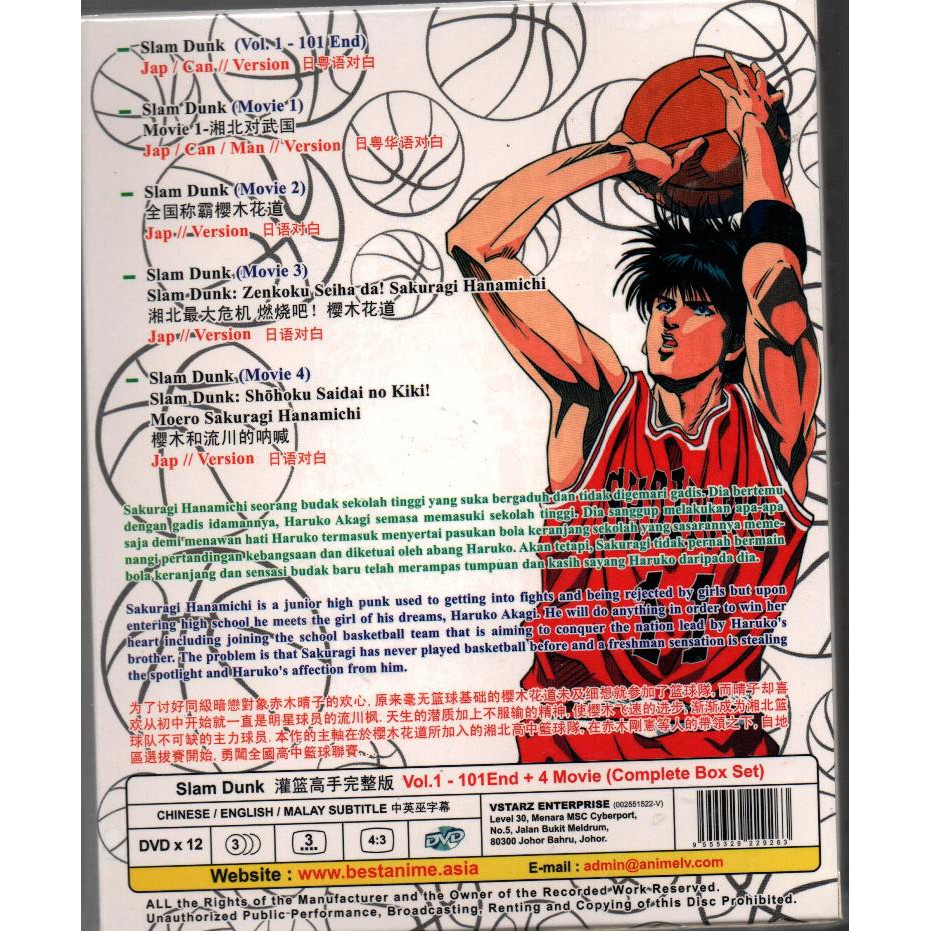 Slam Dunk (Vol. 1 - 101 End)
Jap / Can // Version 日粤语对白
Slam Dunk (Movie 1)
Movie 1-湘北对武国
Jap / Can / Man // Version 日粤华语对白
Slam Dunk (Movie 2)
全国称霸樱木花道
Jap // Version 日语对白
Slam Dunk (Movie 3)
Slam Dunk: Zenkoku Seiha da! Sakuragi Hanamichi
湘北最大危机 燃烧吧! 樱木花道
Jap // Version 日语对白
Slam Dunk (Movie 4)
Slam Dunk: Shōhoku Saidai no Kiki!
Moero Sakuragi Hanamichi
樱木和流川的呐喊
Jap // Version 日语对白
Sakuragi Hanamichi seorang budak sekolah tinggi yang suka bergaduh dan tidak digemari gadis. Dia bertemu
dengan gadis idamannya, Haruko Akagi semasa memasuki sekolah tinggi. Dia sanggup melakukan apa-apa
saja demi menawan hati Haruko termasuk menyertai pasukan bola keranjang sekolah yang sasarannya meme-
nangi pertandingan kebangsaan dan diketuai oleh abang Haruko. Akan tetapi, Sakuragi tidak pernah bermain
bola keranjang dan sensasi budak baru telah merampas tumpuan dan kasih sayang Haruko daripada dia.
Sakuragi Hanamichi is a junior high punk used to getting into fights and being rejected by girls but upon
entering high school he meets the girl of his dreams, Haruko Akagi. He will do anything in order to win her
heart including joining the school basketball team that is aiming to conquer the nation lead by Haruko's
brother. The problem is that Sakuragi has never played basketball before and a freshman sensation is stealing
the spotlight and Haruko's affection from him.
为了讨好同級暗戀對象赤木晴子的欢心, 原来毫无篮球基础的樱木花道未及细想就参加了篮球隊, 而晴子却喜
欢从初中开始就一直是明星球员的流川枫. 天生的潜质加上不服输的精神, 使樱木飞速的进步, 渐渐成为湘北篮
球队不可缺的主力球员. 本作的主軸在於櫻木花道所加入的湘北高中籃球隊, 在赤木剛憲等人的帶領之下, 自地
區選拔賽開始, 勇闖全國高中籃球聯賽....
Slam Dunk 灌篮高手完整版 Vol.1 - 101End + 4 Movie (Complete Box Set)
CHINESE / ENGLISH / MALAY SUBTITLE 中英巫字幕
DVD x 12
3
3
4:3
DVD
VSTARZ ENTERPRISE (002551522-V)
Level 30, Menara MSC Cyberport,
No.5, Jalan Bukit Meldrum,
80300 Johor Bahru, Johor.
9 555329 229263
Website : www.bestanime.asia
E-mail : admin@animelv.com
ALL the Rights of the Manufacturer and the Owner of the Recorded Work Reserved.
Unauthorized Public Performance, Broadcasting, Renting and Copying of this Disc Prohibited.